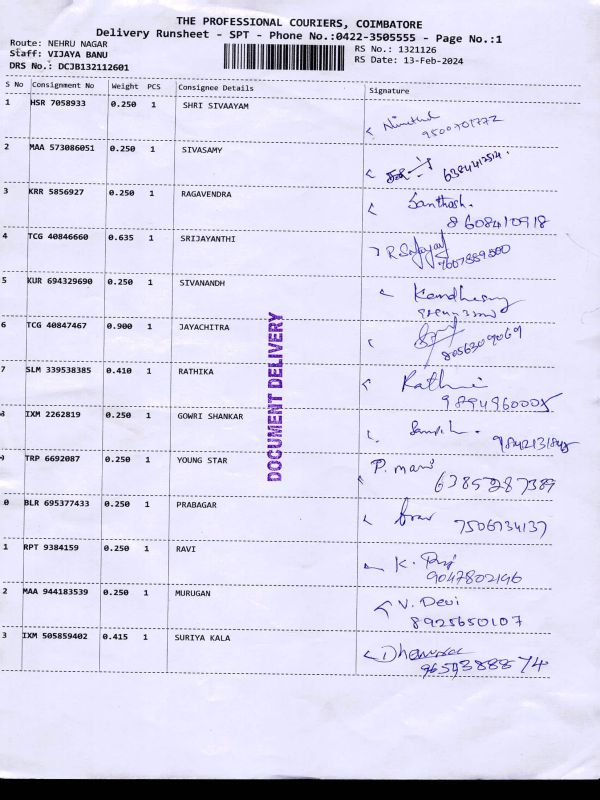 THE PROFESSIONAL COURIERS, COIMBATORE
Delivery Runsheet - SPT - Phone No.:0422-3505555 - Page No.:1
Route: NEHRU NAGAR
Staff: VIJAYA BANU
DRS No.: DCJB132112601
RS No.: 1321126
RS Date: 13-Feb-2024
S No Consignment No Weight PCS Consignee Details Signature
1 HSR 7058933 0.250 1 SHRI SIVAAYAM
9500701772
2 MAA 573086051 0.250 1 SIVASAMY
3 KRR 5856927 0.250 1 RAGAVENDRA Santhosh.
8608410918
4 TCG 40846660 0.635 1 SRIJAYANTHI
5 KUR 694329690 0.250 1 SIVANANDH
6 TCG 40847467 0.900 1 JAYACHITRA
8056309069
7 SLM 339538385 0.410 1 RATHIKA
8 IXM 2262819 0.250 1 GOWRI SHANKAR
9 TRP 6692087 0.250 1 YOUNG STAR P. mani
6385287389
0 BLR 695377433 0.250 1 PRABAGAR
7506734137
1 RPT 9384159 0.250 1 RAVI K.
9047802196
2 MAA 944183539 0.250 1 MURUGAN V. Devi
8925650107
3 IXM 505859402 0.415 1 SURIYA KALA
DOCUMENT DELIVERY